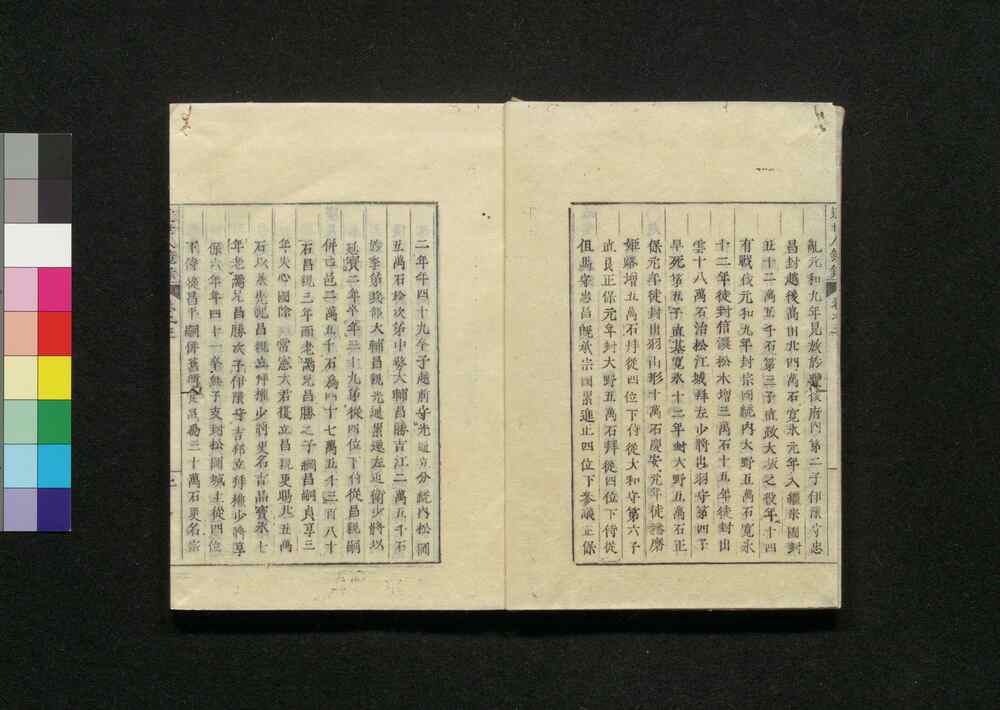 亂元和九年見放於豐後府內第二子伊豫守忠
昌封越後高田北四萬石寬永元年入繼宗國封
五十二萬五千石第三子直政大坂之役年十四
有戰伐元和九年封宗國統內大野五萬石寬永
十二年徙封信濃松本增二萬石十五年徙封出
雲十八萬石治松江城拜左少將出羽守第四子
早死第五子直基寬永十二年封大野五萬石正
保元年徙封出羽山形十萬石慶安元年徙播磨
姬路增五萬石拜從四位下侍從大和守第六子
直良正保元年封大野五萬石拜從四位下侍從
但馬守忠昌既承宗國累進正四位下參議正保
二年年四十九卒子越前守光通立分統內松岡
五萬石於次弟中務大輔昌勝吉江二萬五千石
於季弟兵部大輔昌親光通累遷左近衛少將以
延寶二年卒年三十九弟從四位下侍從昌親嗣
併吉江邑二萬五千石為四十七萬五千三百八十
石昌親三年而老焉兄昌勝之子綱昌嗣貞享三
年失心國除 常憲大君復立昌親更賜北五萬
石以養先祀昌親立拜權少將更名吉品寶永七
年老焉兄昌勝次子伊豫守吉邦立拜權少將享
保六年年四十一卒無子支封松岡城主從四位
下侍從昌平嗣併舊領為三十萬石更名宗